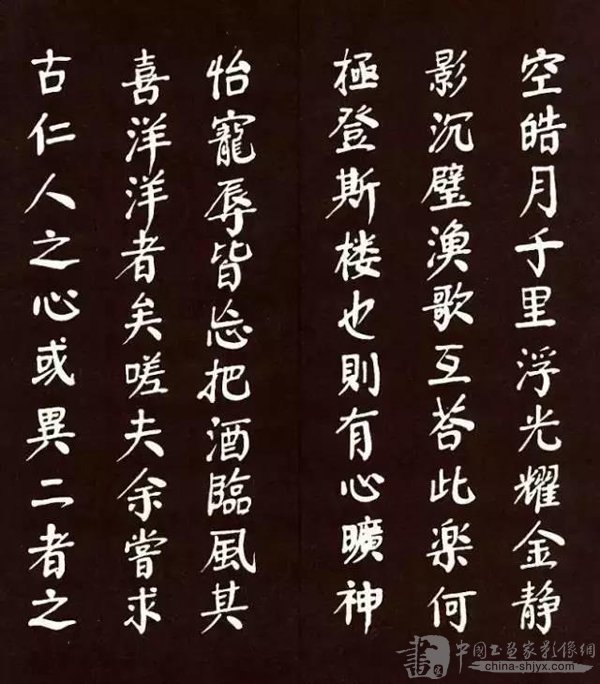 空皓月千里浮光耀金静
影沉璧渔歌互荅此楽何
極登斯楼也則有心曠神
怡寵辱皆忘把酒臨風其
喜洋洋者矣嗟夫余嘗求
古仁人之心或異二者之
書 中国书画家影像網
china-shjyx.com